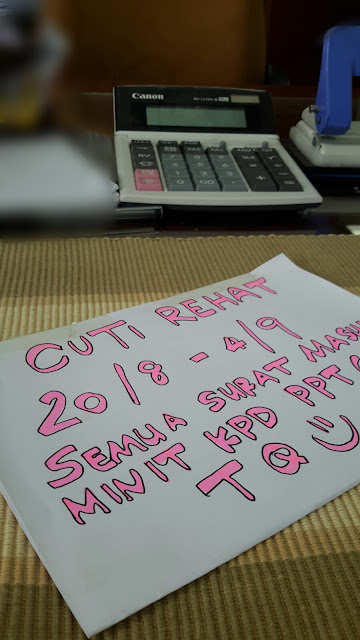 Canon
CUTI REHAT
20/8 - 4/9
SEMUA SURAT
MINIT KPD PPT
TQ